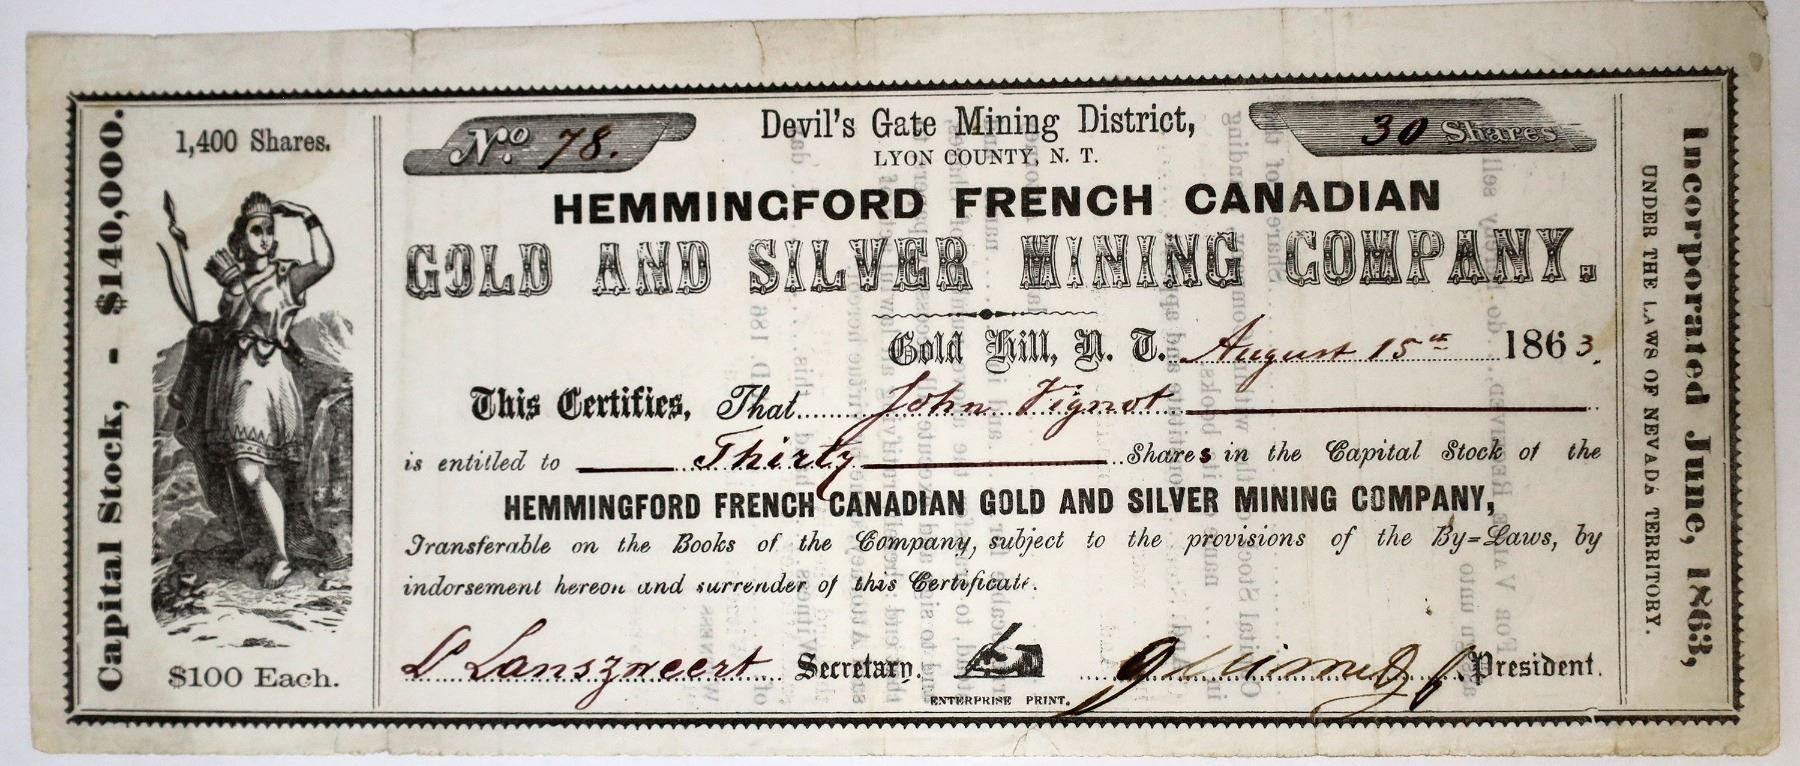 Capital Stock, - $140,000.
1,400 Shares.
$100 Each.
No. 78.
Devil's Gate Mining District,
30 Shares
LYON COUNTY, N. T.
HEMMINGFORD FRENCH CANADIAN
GOLD AND SILVER MINING COMPANY.
Gold Hill, N. T. August 15th 1863.
This Certifies, That John Vignot
is entitled to Thirty Shares in the Capital Stock of the
HEMMINGFORD FRENCH CANADIAN GOLD AND SILVER MINING COMPANY,
Transferable on the Books of the Company, subject to the provisions of the By=Laws, by
indorsement hereon and surrender of this Certificate.
L Lanszweert Secretary. President.
ENTERPRISE PRINT.
Incorporated June, 1863,
UNDER THE LAWS OF NEVADA TERRITORY.